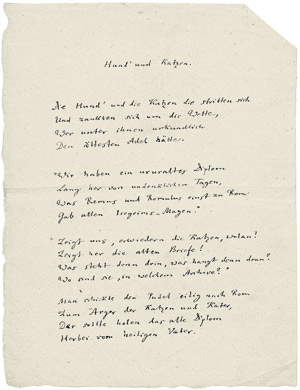 Hund' und Katzen.
Die Hund' und die Katzen die stritten sich
Und zankten sich um die Wette,
Wer unter ihnen urkundlich
Den ältesten Adel hätte.
"Wir haben ein uraltes Diplom
Lang her von undenklichen Tagen,
Was Remus und Romulus einst zu Rom
Gab allen Isegrims-Magen."
"Zeigt uns, erwiedern die Katzen, wolan!
Zeigt her die alten Briefe!
Was steht denn drin, was hangt denn dran?
Wo sind sie, in welchem Archive?"
Man schickte den Pudel eilig nach Rom
Zum Ärger der Katzen und Kater,
Der sollte holen das alte Diplom
Herbei vom heiligen Vater.